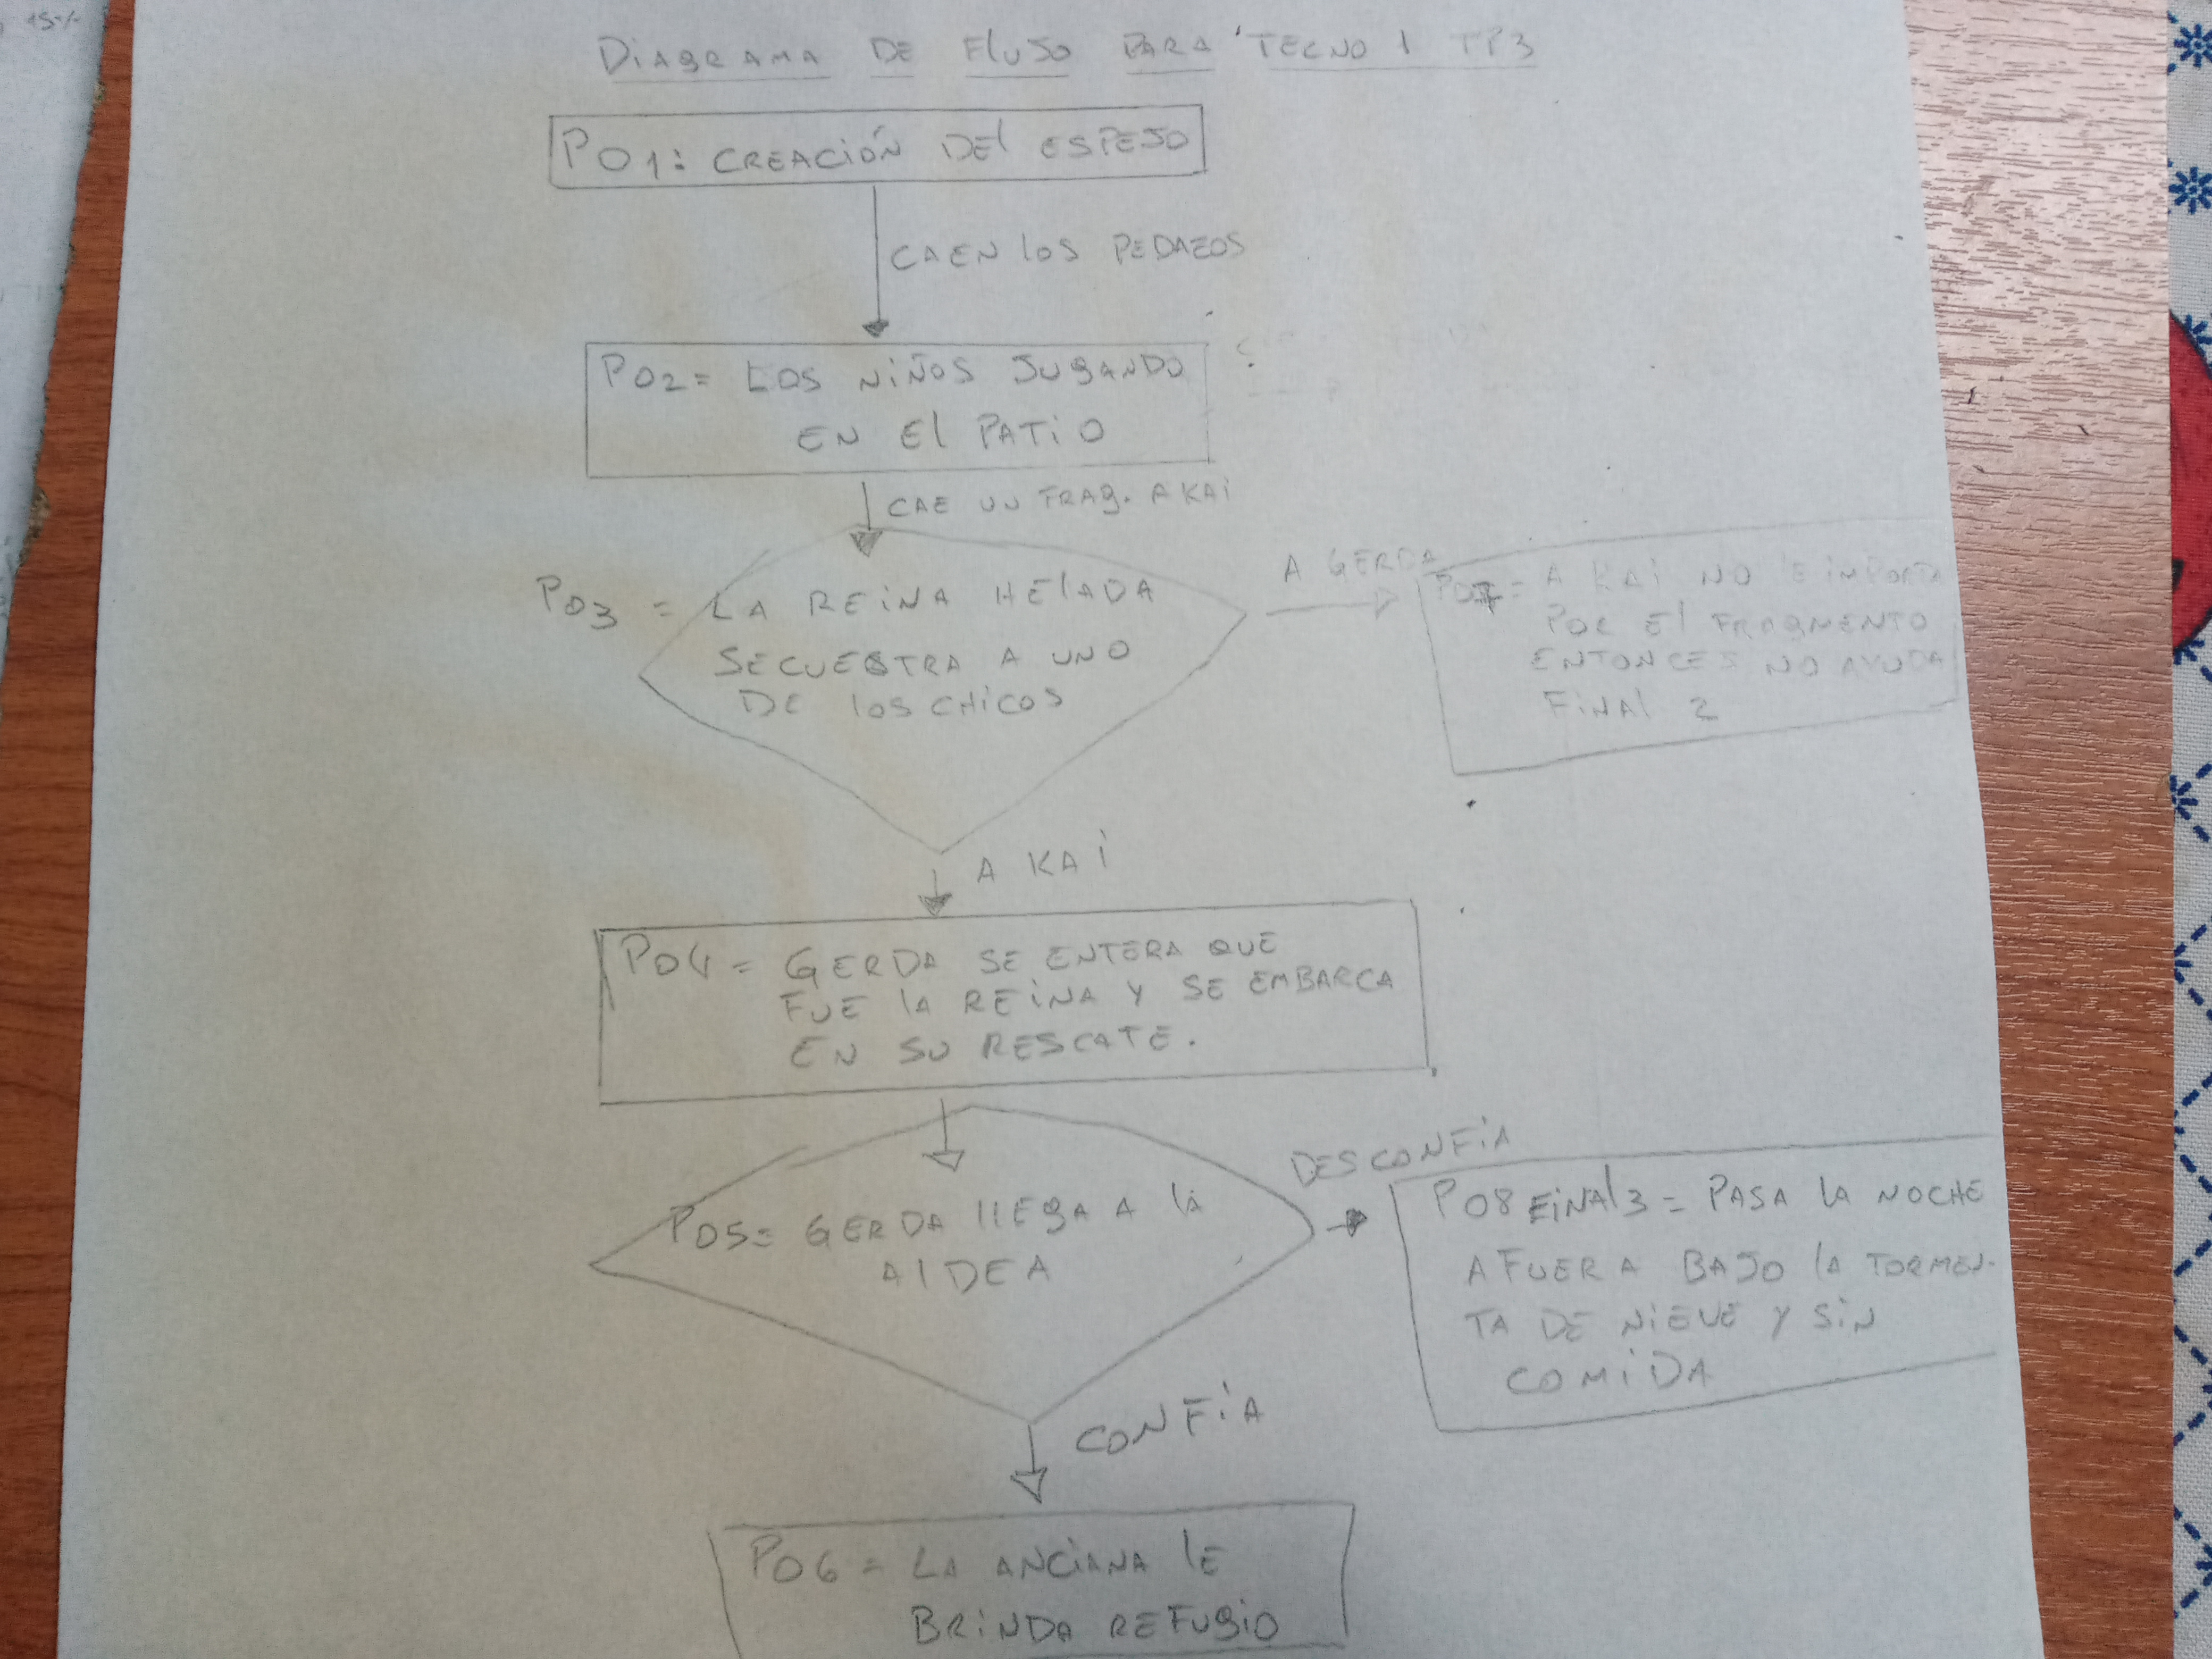 15%
DIAGRAMA DE FLUJO PARA TECNO 1 TP3
P01: CREACIÓN DEL ESPEJO
CAEN LOS PEDAZOS
P02= LOS NIÑOS JUGANDO
EN EL PATIO
CAE UN FRAG. A KAI
P03 = LA REINA HELADA
SECUESTRA A UNO
DE LOS CHICOS
A GERDA
P07= A KAI NO LE IMPORTA
POR EL FRAGMENTO
ENTONCES NO AYUDA
FINAL 2
A KAI
P04= GERDA SE ENTERA QUE
FUE LA REINA Y SE EMBARCA
EN SU RESCATE.
P05= GERDA LLEGA A LA
ALDEA
DESCONFÍA
P08 FINAL3= PASA LA NOCHE
AFUERA BAJO LA TORMEN-
TA DE NIEVE Y SIN
COMIDA
CONFÍA
P06= LA ANCIANA LE
BRINDA REFUGIO